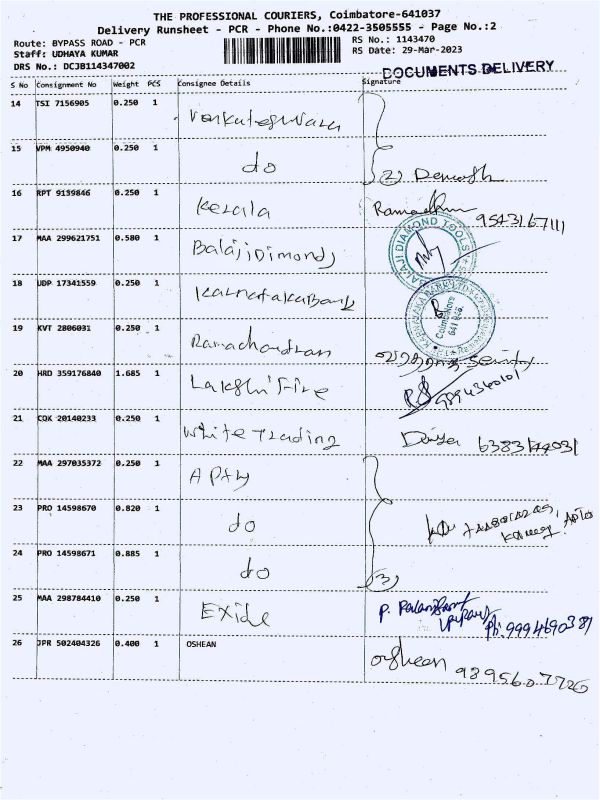 THE PROFESSIONAL COURIERS, Coimbatore-641037
Delivery Runsheet - PCR - Phone No.:0422-3505555 - Page No.:2
Route: BYPASS ROAD - PCR
Staff: UDHAYA KUMAR
DRS No.: DCJB114347002
RS No.: 1143470
RS Date: 29-Mar-2023
DOCUMENTS DELIVERY
S No Consignment No Weight PCS Consignee Details Signature
14 TSI 7156905 0.250 1
15 VPM 4950940 0.250 1 do
16 RPT 9139846 0.250 1 Kerala
17 MAA 299621751 0.580 1 Balaji Dimonds
BALAJI DIAMOND TOOLS
18 UDP 17341559 0.250 1 Karnataka Bank
Coimbatore
19 KVT 2806031 0.250 1 Ramachandran
20 HRD 359176840 1.685 1 Lakshi Fire
21 COK 20140233 0.250 1 White Trading
22 MAA 297035372 0.250 1
23 PRO 14598670 0.820 1 do
24 PRO 14598671 0.885 1 do (3)
25 MAA 298784410 0.250 1 Exide
26 JPR 502404326 0.400 1 OSHEAN oshean